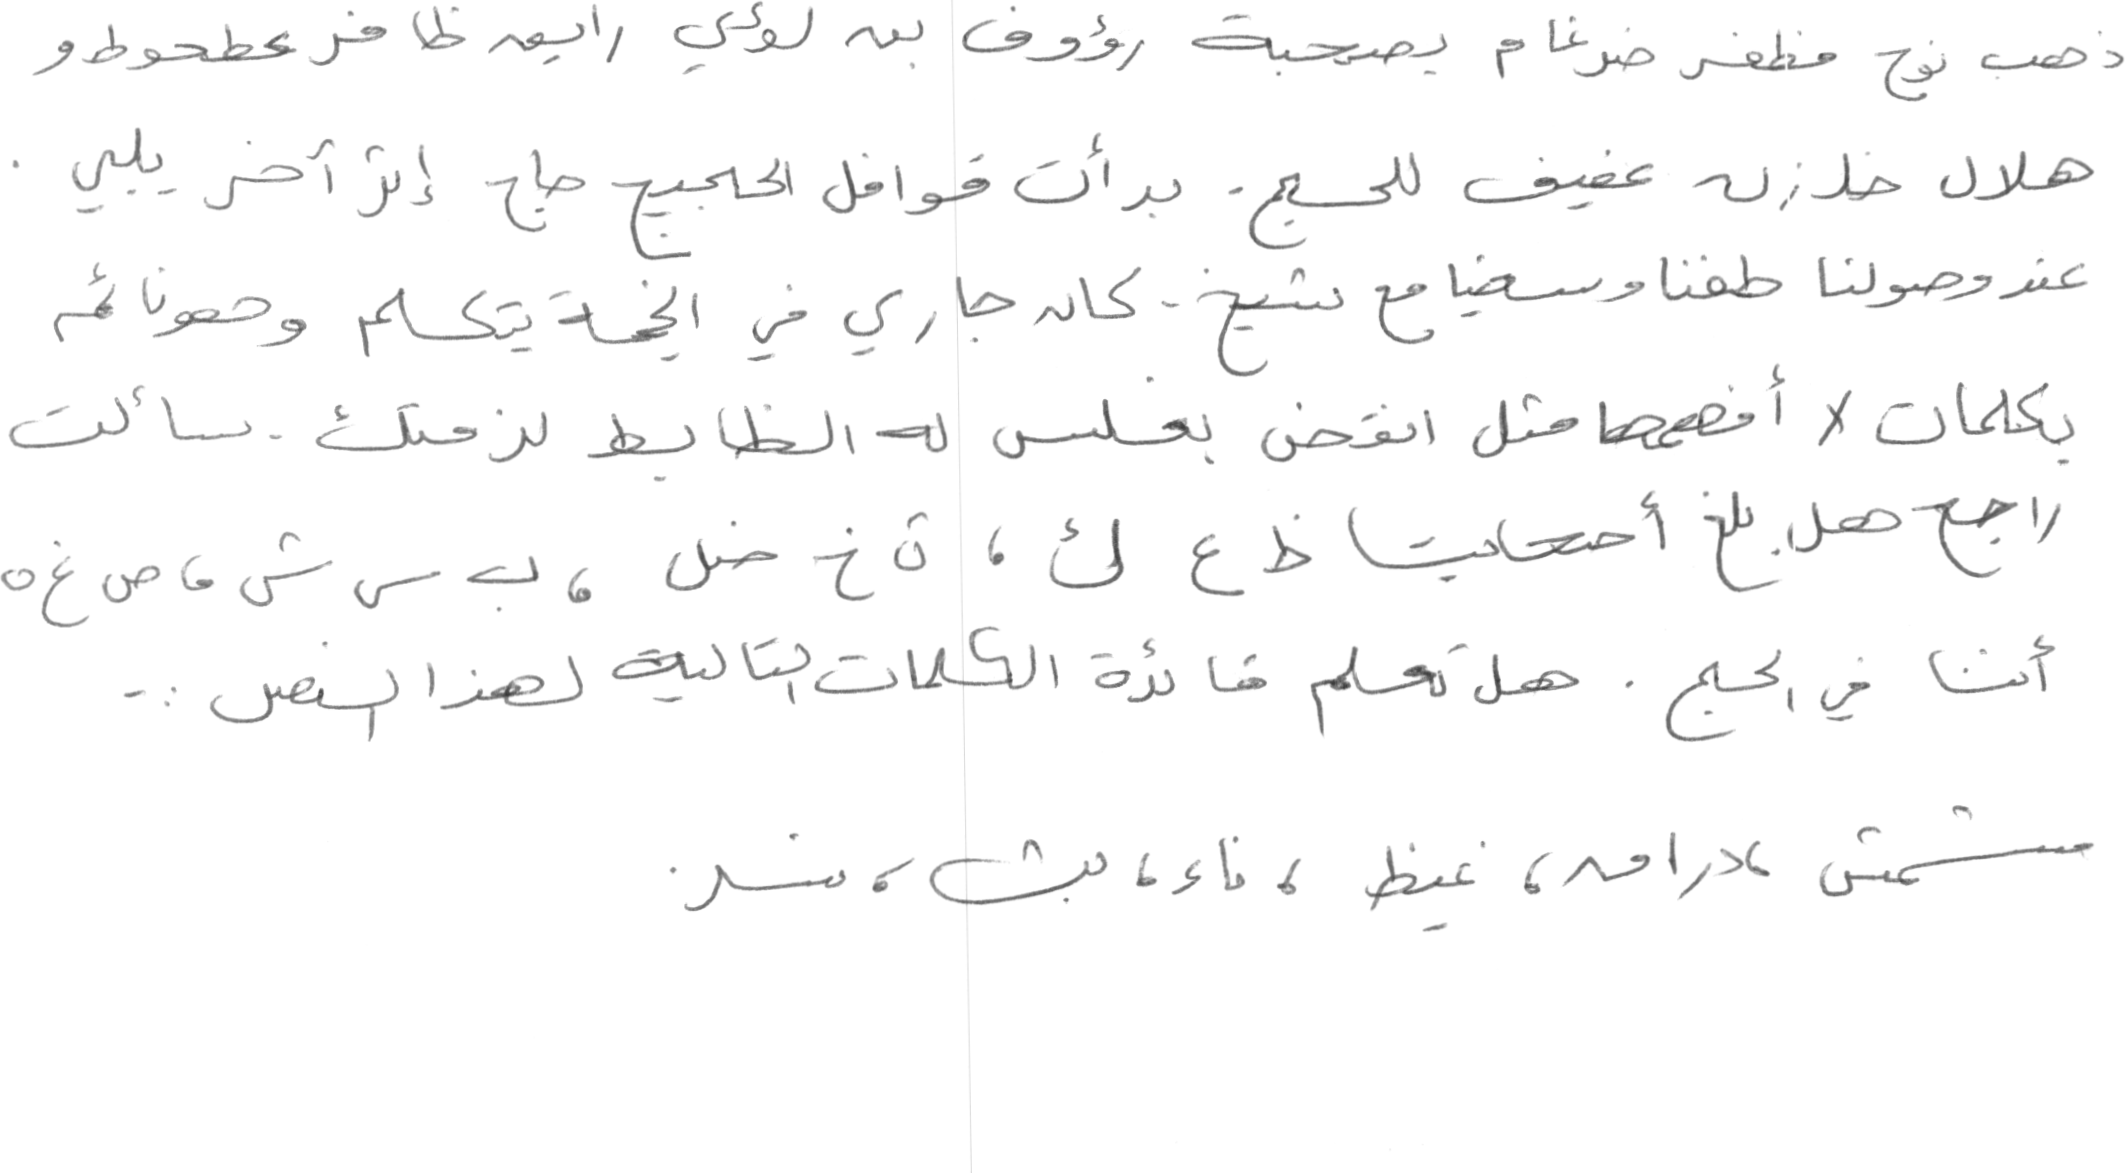 ذهب نوح مظفر ضرغام بصحبة رؤوف بن لؤي رايق ظافر عطحوط و
هلال خازن عفيف للحج. بدأت قوافل الحجيج حاج إثر آخر يلبي.
عند وصولنا طفنا وسعينا مع شيخ. كان جاري في الخيمة يتكلم وهو نائم
بكلمات لا أفهمها مثل انقض بغلس له الظابط لزمتك. سألت
راجح هل بلغ أصحابنا ظ ع ك، ث خ ض ل، ب س ش، ص غ ه
أننا في الحج. هل تعلم فائدة الكلمات التالية لهذا النص:-
مشمش، درامه، غيظ، ناء، بث،